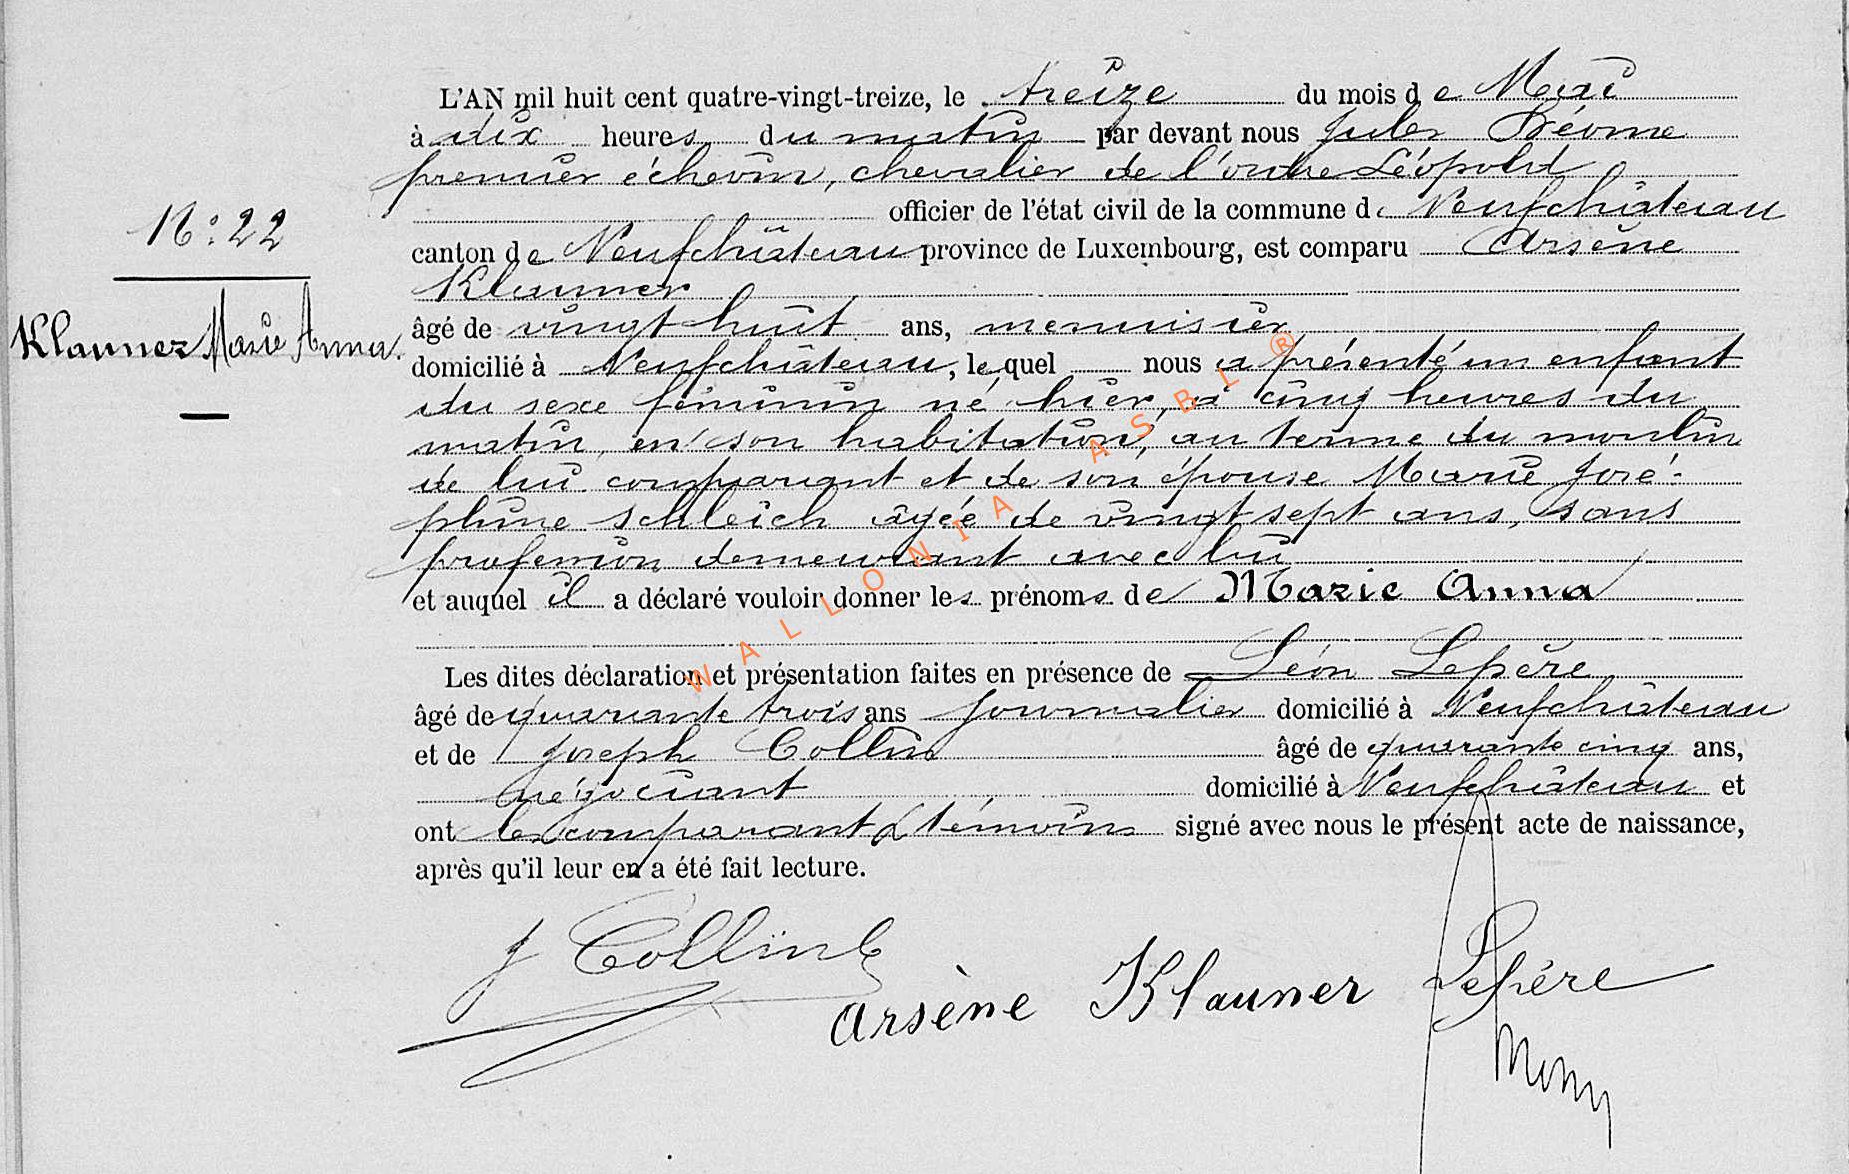 L'AN mil huit cent quatre-vingt-treize, le treize du mois de Mai
à dix heures du matin par devant nous Jules
premier échevin, chevalier de l'ordre Léopold
officier de l'état civil de la commune de Neufchâteau
N: 22
canton de Neufchâteau province de Luxembourg, est comparu Arsène
Klauner
Klauner Marie Anna.
âgé de vingt huit ans, menuisier
domicilié à Neufchâteau, lequel nous a présenté un enfant
du sexe féminin né hier, à cinq heures du
matin, en son habitation, au terme du moulin
de lui comparant et de son épouse Marie José-
phine Schleich âgée de vingt sept ans, sans
profession demeurant avec lui
et auquel il a déclaré vouloir donner les prénoms de Marie Anna
Les dites déclaration et présentation faites en présence de Léon Lepère
âgé de quarante trois ans journalier domicilié à Neufchâteau
et de Joseph Collin âgé de quarante cinq ans,
négociant domicilié à Neufchâteau et
ont les comparant & témoins signé avec nous le présent acte de naissance,
après qu'il leur en a été fait lecture.
J Collin
Arsène Klauner Lepère
WALLONIA ASBL ®